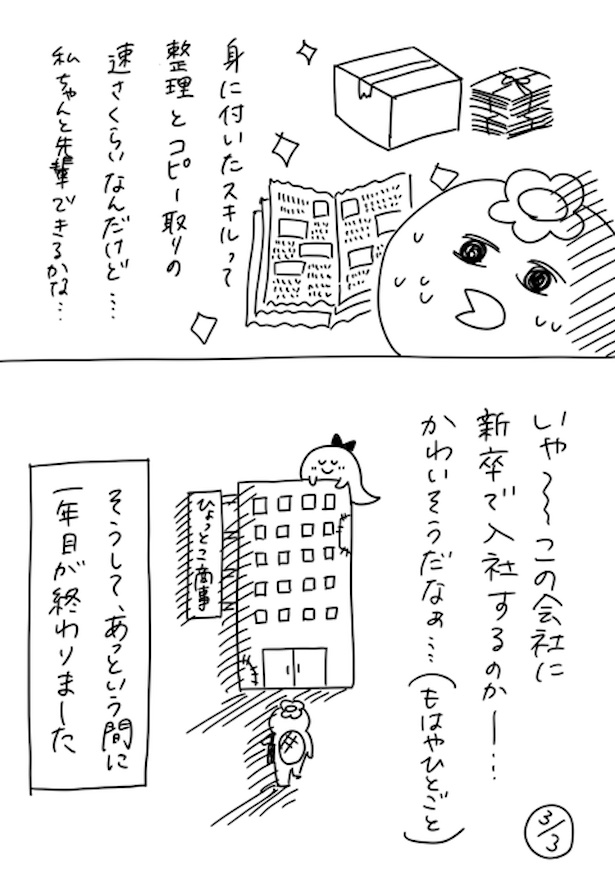 身に付いたスキルって
整理とコピー取りの
速さくらいなんだけど……
私ちゃんと先輩できるかな…
いや〜〜この会社に
新卒で入社するのかー…
かわいそうだなぁ…(もはやひとごと)
ひょっとこ商事
そうして、あっという間に
一年目が終わりました
3/3